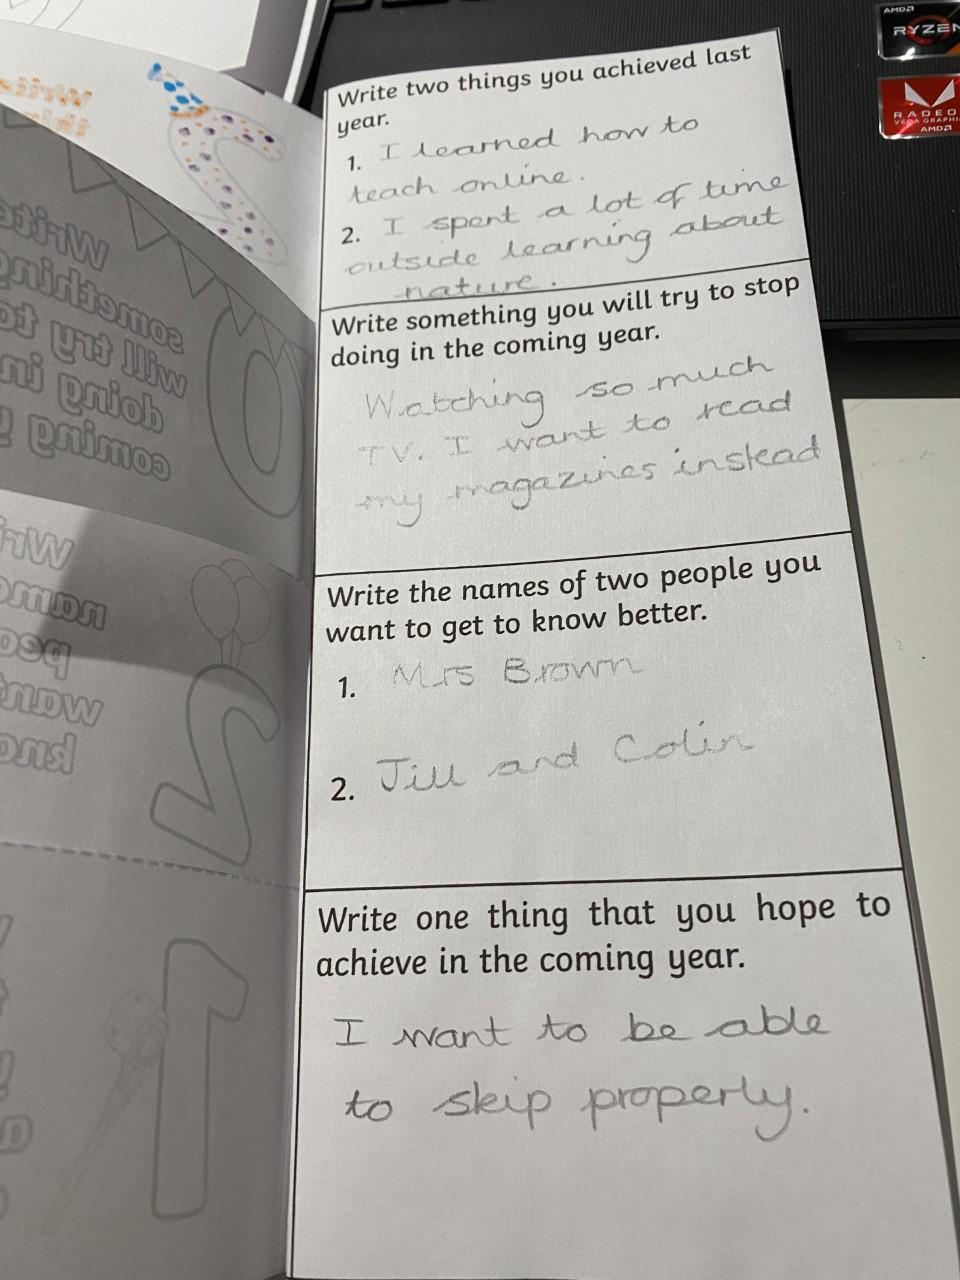 Write two things you achieved last
year.
1. I learned how to
teach online.
2. I spent a lot of time
outside learning about
nature.
Write something you will try to stop
doing in the coming year.
Watching so much
TV. I want to read
my magazines instead
Write the names of two people you
want to get to know better.
1. Mrs Brown
2. Jill and Colin
Write one thing that you hope to
achieve in the coming year.
I want to be able
to skip properly.
Write
something
will try to
doing in
coming y
Wri
name
peo
want
kno
2
0
2
1
AMD
RYZEN
RADEO
VEGA GRAPHI
AMD